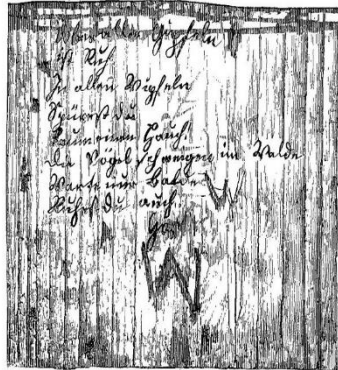 allen Gipfeln
ist Ruh
In allen Wipfeln
Spürest du
Kaum einen Hauch.
Die Vögel schweigen im Walde
Warte nur balde W
Ruhest du auch.
W